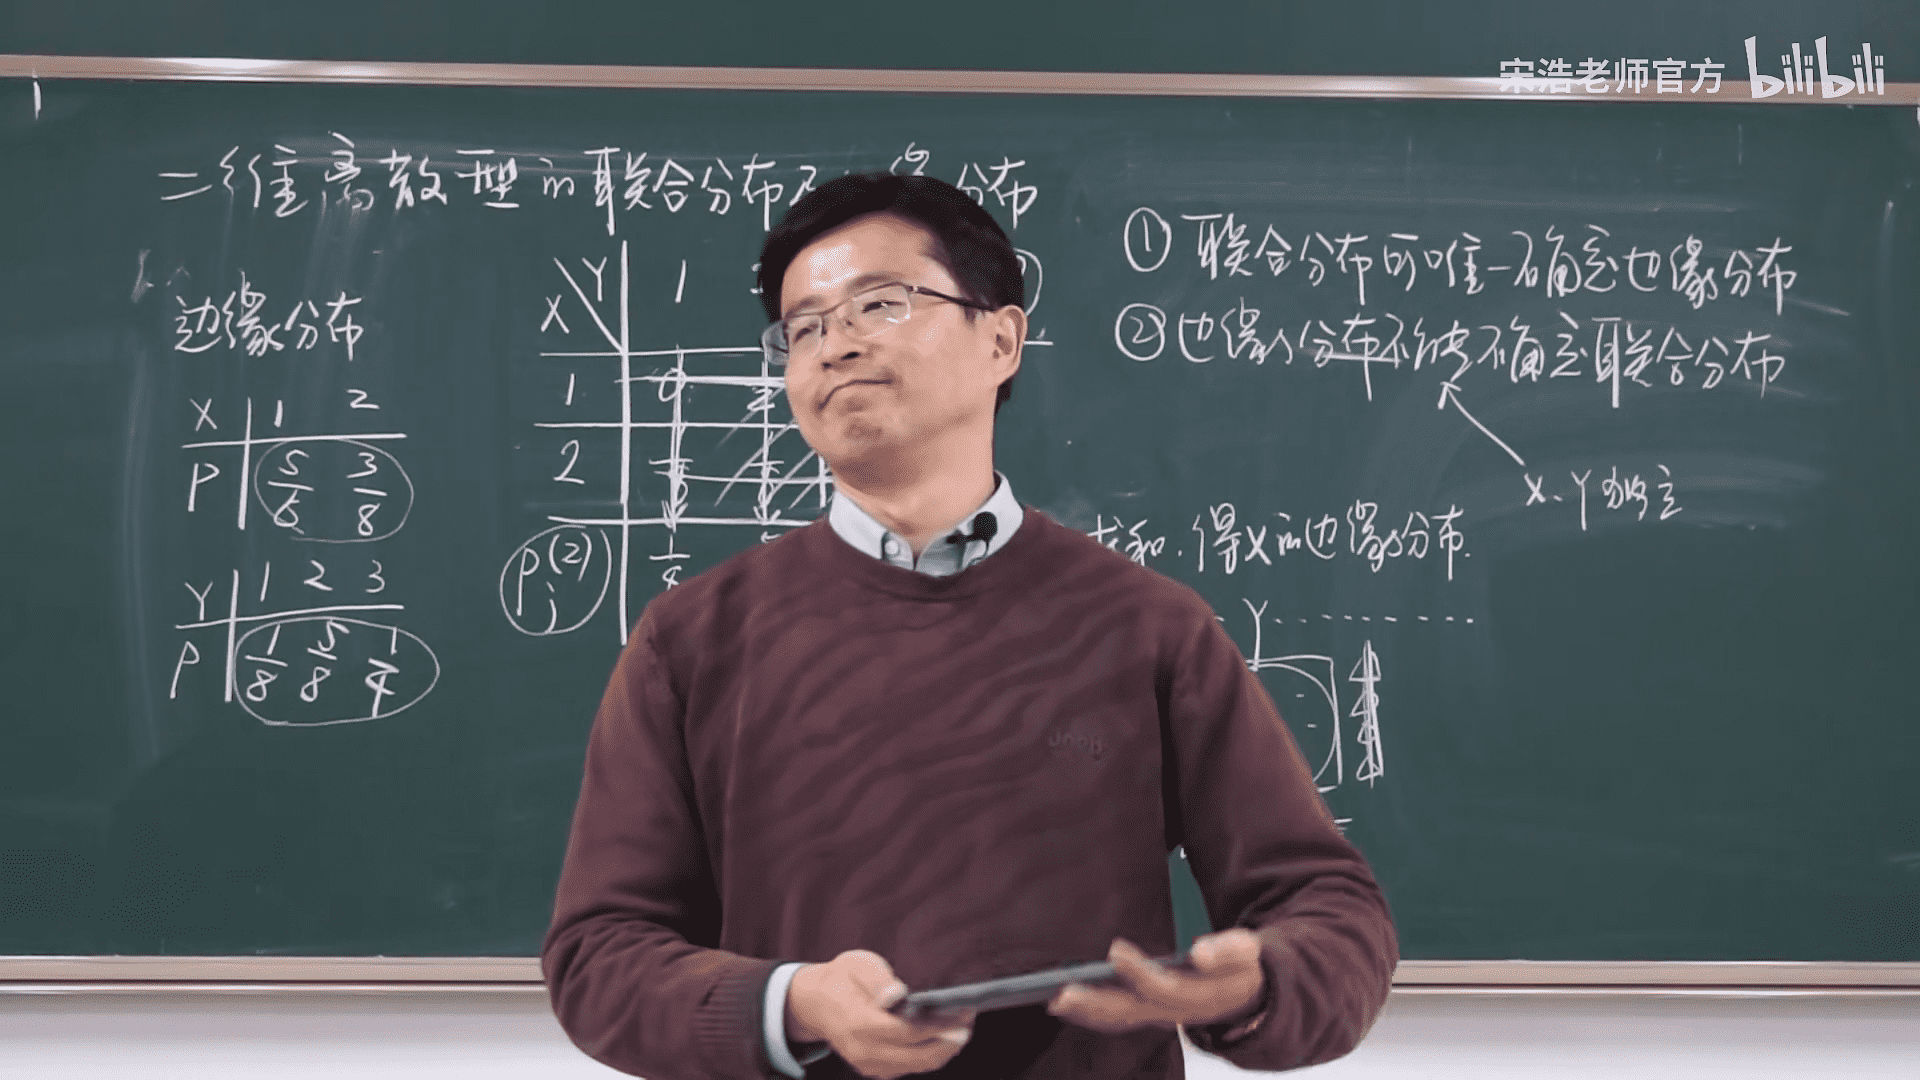 宋浩老师官方 bilibili
二维离散型的联合分布及 缘分布
边缘分布
X 1 2
P 5/8 3/8
Y 1 2 3
P 1/8 5/8 1/4
Y 1
X
1 0
2
p_j^(2)
① 联合分布可唯一确定边缘分布
② 边缘分布不能确定联合分布
X、Y独立
求和，得X的边缘分布.
Y ........